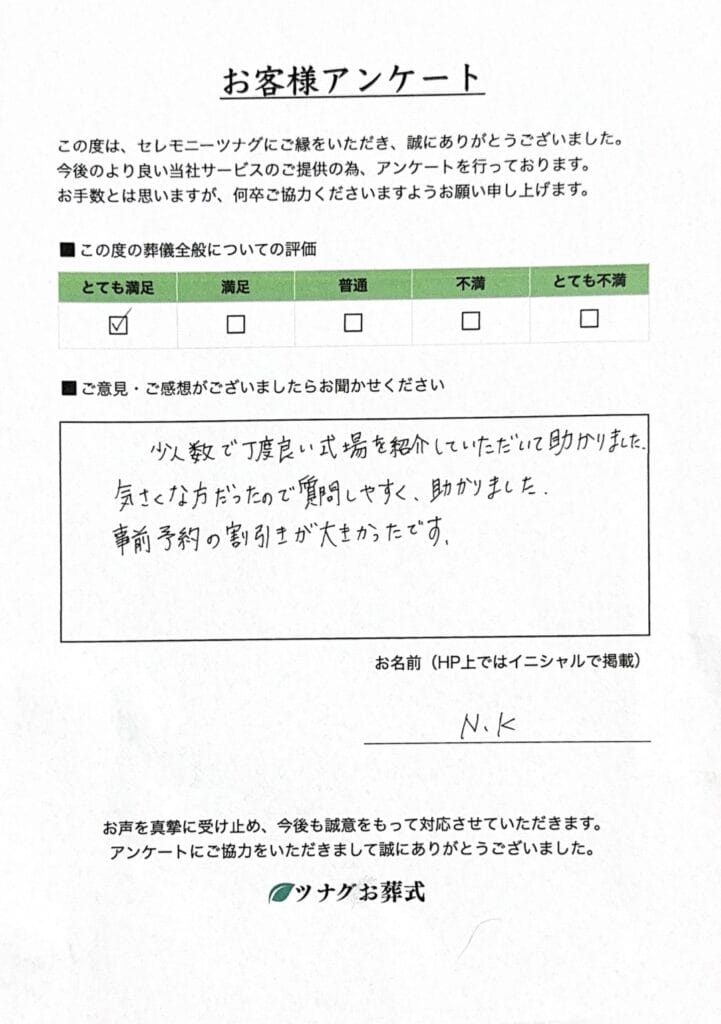 お客様アンケート
この度は、セレモニーツナグにご縁をいただき、誠にありがとうございました。
今後のより良い当社サービスのご提供の為、アンケートを行っております。
お手数とは思いますが、何卒ご協力くださいますようお願い申し上げます。
■ この度の葬儀全般についての評価
とても満足 満足 普通 不満 とても不満
☑ ☐ ☐ ☐ ☐
■ ご意見・ご感想がございましたらお聞かせください
少人数で丁度良い式場を紹介していただいて助かりました.
気さくな方だったので質問しやすく、助かりました.
事前予約の割引きが大きかったです。
お名前（HP上ではイニシャルで掲載）
N.K
お声を真摯に受け止め、今後も誠意をもって対応させていただきます。
アンケートにご協力をいただきまして誠にありがとうございました。
ツナグお葬式